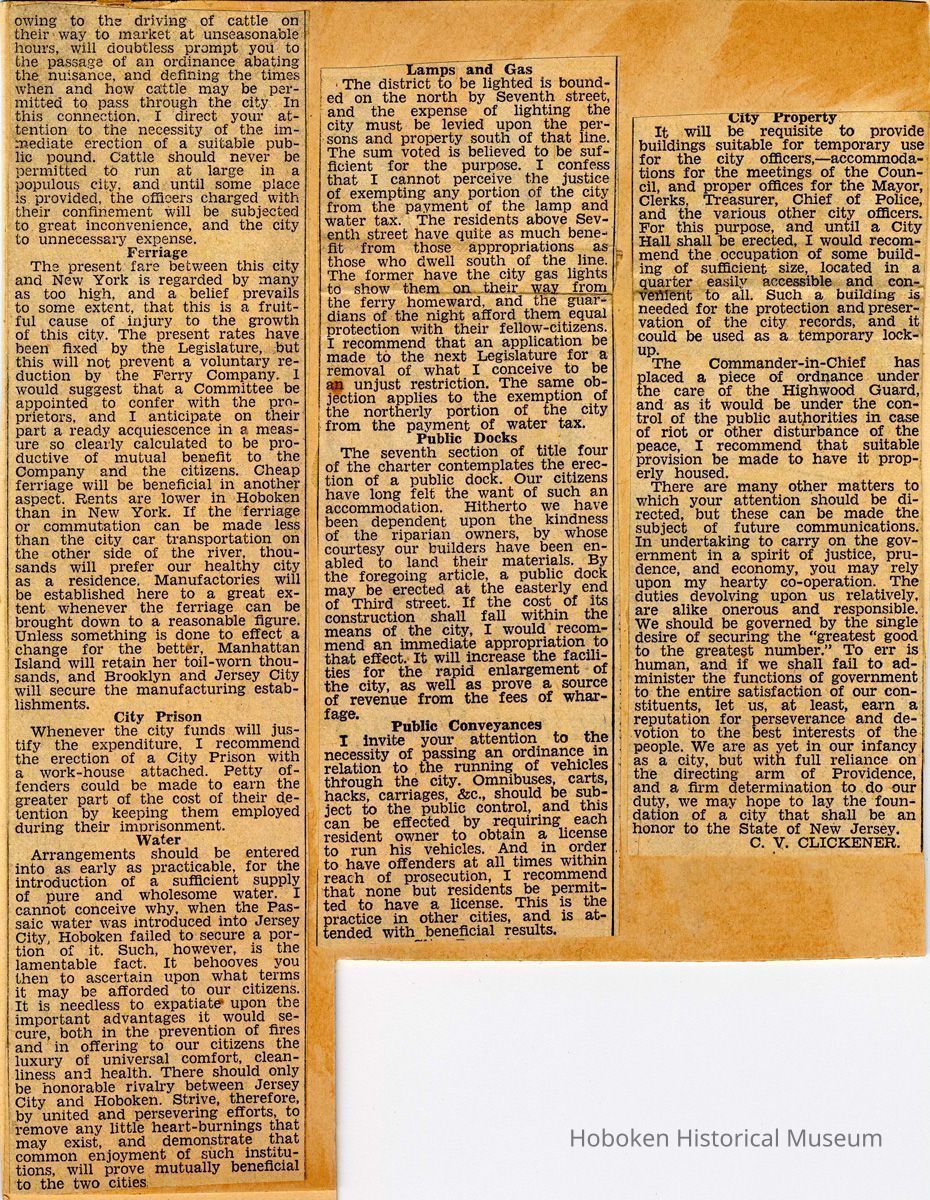 owing to the driving of cattle on
their way to market at unseasonable
hours, will doubtless prompt you to
the passage of an ordinance abating
the nuisance, and defining the times
when and how cattle may be per-
mitted to pass through the city. In
this connection, I direct your at-
tention to the necessity of the im-
mediate erection of a suitable pub-
lic pound. Cattle should never be
permitted to run at large in a
populous city, and until some place
is provided, the officers charged with
their confinement will be subjected
to great inconvenience, and the city
to unnecessary expense.
Ferriage
The present fare between this city
and New York is regarded by many
as too high, and a belief prevails
to some extent, that this is a fruit-
ful cause of injury to the growth
of this city. The present rates have
been fixed by the Legislature, but
this will not prevent a voluntary re-
duction by the Ferry Company. I
would suggest that a Committee be
appointed to confer with the pro-
prietors, and I anticipate on their
part a ready acquiescence in a meas-
ure so clearly calculated to be pro-
ductive of mutual benefit to the
Company and the citizens. Cheap
ferriage will be beneficial in another
aspect. Rents are lower in Hoboken
than in New York. If the ferriage
or commutation can be made less
than the city car transportation on
the other side of the river, thou-
sands will prefer our healthy city
as a residence. Manufactories will
be established here to a great ex-
tent whenever the ferriage can be
brought down to a reasonable figure.
Unless something is done to effect a
change for the better, Manhattan
Island will retain her toil-worn thou-
sands, and Brooklyn and Jersey City
will secure the manufacturing estab-
lishments.
City Prison
Whenever the city funds will jus-
tify the expenditure, I recommend
the erection of a City Prison with
a work-house attached. Petty of-
fenders could be made to earn the
greater part of the cost of their de-
tention by keeping them employed
during their imprisonment.
Water
Arrangements should be entered
into as early as practicable, for the
introduction of a sufficient supply
of pure and wholesome water. I
cannot conceive why, when the Pas-
saic water was introduced into Jersey
City, Hoboken failed to secure a por-
tion of it. Such, however, is the
lamentable fact. It behooves you
then to ascertain upon what terms
it may be afforded to our citizens.
It is needless to expatiate upon the
important advantages it would se-
cure, both in the prevention of fires
and in offering to our citizens the
luxury of universal comfort, clean-
liness and health. There should only
be honorable rivalry between Jersey
City and Hoboken. Strive, therefore,
by united and persevering efforts, to
remove any little heart-burnings that
may exist, and demonstrate that
common enjoyment of such institu-
tions, will prove mutually beneficial
to the two cities
Lamps and Gas
The district to be lighted is bound-
ed on the north by Seventh street,
and the expense of lighting the
city must be levied upon the per-
sons and property south of that line.
The sum voted is believed to be suf-
ficient for the purpose. I confess
that I cannot perceive the justice
of exempting any portion of the city
from the payment of the lamp and
water tax. The residents above Sev-
enth street have quite as much bene-
fit from those appropriations as
those who dwell south of the line.
The former have the city gas lights
to show them on their way from
the ferry homeward, and the guar-
dians of the night afford them equal
protection with their fellow-citizens.
I recommend that an application be
made to the next Legislature for a
removal of what I conceive to be
an unjust restriction. The same ob-
jection applies to the exemption of
the northerly portion of the city
from the payment of water tax.
Public Docks
The seventh section of title four
of the charter contemplates the erec-
tion of a public dock. Our citizens
have long felt the want of such an
accommodation. Hitherto we have
been dependent upon the kindness
of the riparian owners, by whose
courtesy our builders have been en-
abled to land their materials. By
the foregoing article, a public dock
may be erected at the easterly end
of Third street. If the cost of its
construction shall fall within the
means of the city, I would recom-
mend an immediate appropriation to
that effect. It will increase the facili-
ties for the rapid enlargement of
the city, as well as prove a source
of revenue from the fees of whar-
fage.
Public Conveyances
I invite your attention to the
necessity of passing an ordinance in
relation to the running of vehicles
through the city. Omnibuses, carts,
hacks, carriages, &c., should be sub-
ject to the public control, and this
can be effected by requiring each
resident owner to obtain a license
to run his vehicles. And in order
to have offenders at all times within
reach of prosecution, I recommend
that none but residents be permit-
ted to have a license. This is the
practice in other cities, and is at-
tended with beneficial results.
City Property
It will be requisite to provide
buildings suitable for temporary use
for the city officers,—accommoda-
tions for the meetings of the Coun-
cil, and proper offices for the Mayor,
Clerks, Treasurer, Chief of Police,
and the various other city officers.
For this purpose, and until a City
Hall shall be erected, I would recom-
mend the occupation of some build-
ing of sufficient size, located in a
quarter easily accessible and con-
venient to all. Such a building is
needed for the protection and preser-
vation of the city records, and it
could be used as a temporary lock-
up.
The Commander-in-Chief has
placed a piece of ordnance under
the care of the Highwood Guard,
and as it would be under the con-
trol of the public authorities in case
of riot or other disturbance of the
peace, I recommend that suitable
provision be made to have it prop-
erly housed.
There are many other matters to
which your attention should be di-
rected, but these can be made the
subject of future communications.
In undertaking to carry on the gov-
ernment in a spirit of justice, pru-
dence, and economy, you may rely
upon my hearty co-operation. The
duties devolving upon us relatively,
are alike onerous and responsible.
We should be governed by the single
desire of securing the "greatest good
to the greatest number." To err is
human, and if we shall fail to ad-
minister the functions of government
to the entire satisfaction of our con-
stituents, let us, at least, earn a
reputation for perseverance and de-
votion to the best interests of the
people. We are as yet in our infancy
as a city, but with full reliance on
the directing arm of Providence,
and a firm determination to do our
duty, we may hope to lay the foun-
dation of a city that shall be an
honor to the State of New Jersey.
C. V. CLICKENER.
Hoboken Historical Museum